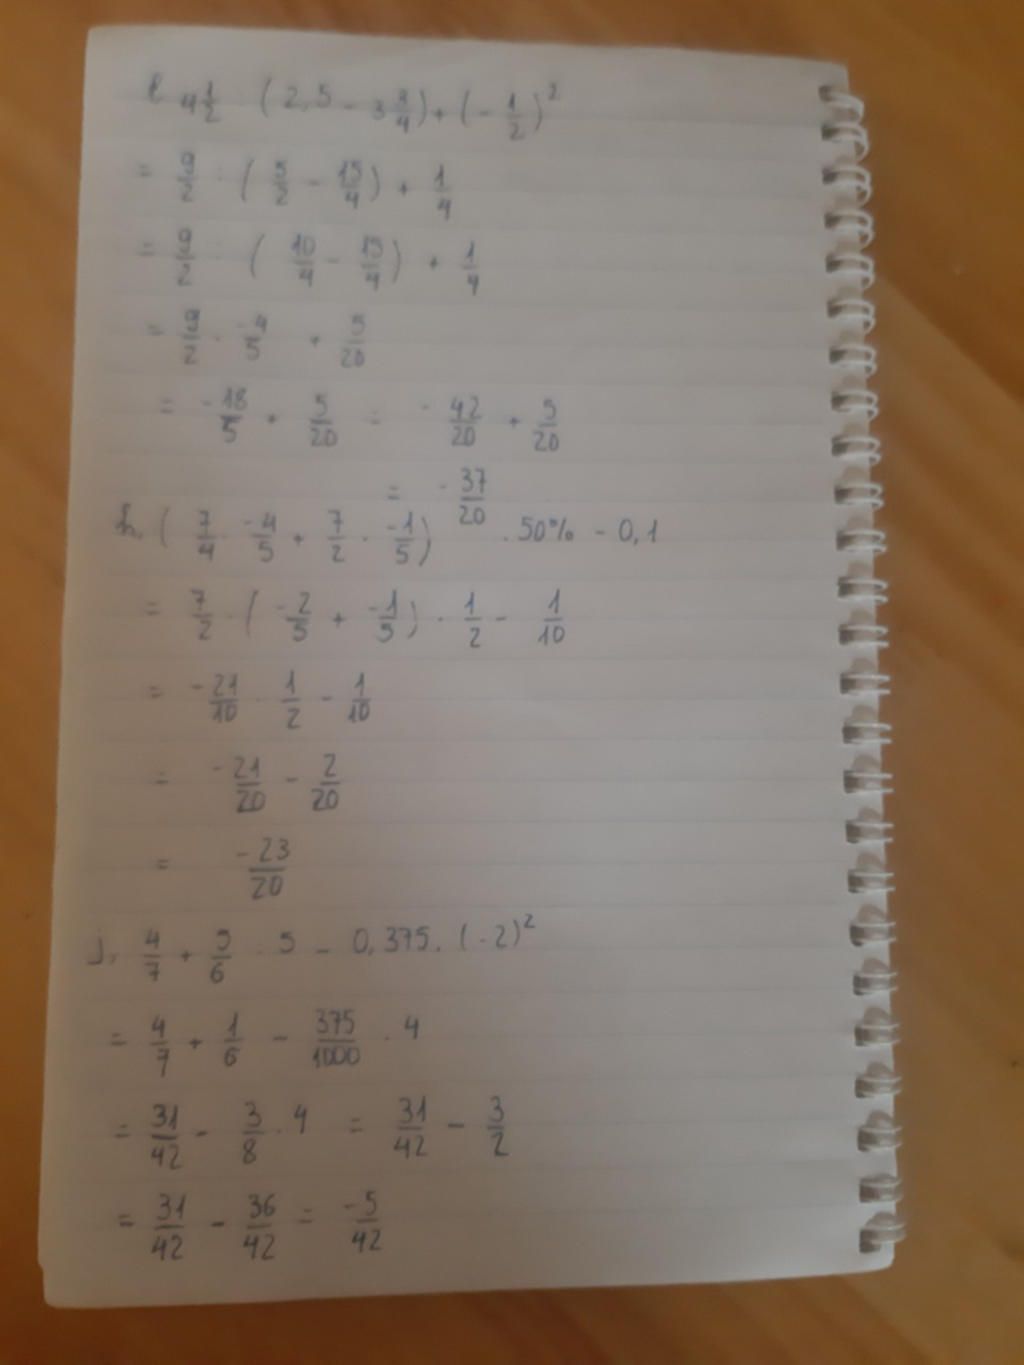 l. 4 1/2 : (2,5 - 3 3/4) + (-1/2)²
= 9/2 : (5/2 - 15/4) + 1/4
= 9/2 : (10/4 - 15/4) + 1/4
= 9/2 · -4/5 + 5/20
= -18/5 + 5/20 = -42/20 + 5/20
= -37/20
h. (7/4 · -4/5 + 7/2 · -1/5) · 50% - 0,1
= 7/2 · (-2/5 + -1/5) · 1/2 - 1/10
= -21/10 · 1/2 - 1/10
= -21/20 - 2/20
= -23/20
j, 4/7 + 5/6 : 5 - 0,375 . (-2)²
= 4/7 + 1/6 - 375/1000 . 4
= 31/42 - 3/8 . 4 = 31/42 - 3/2
= 31/42 - 36/42 = -5/42